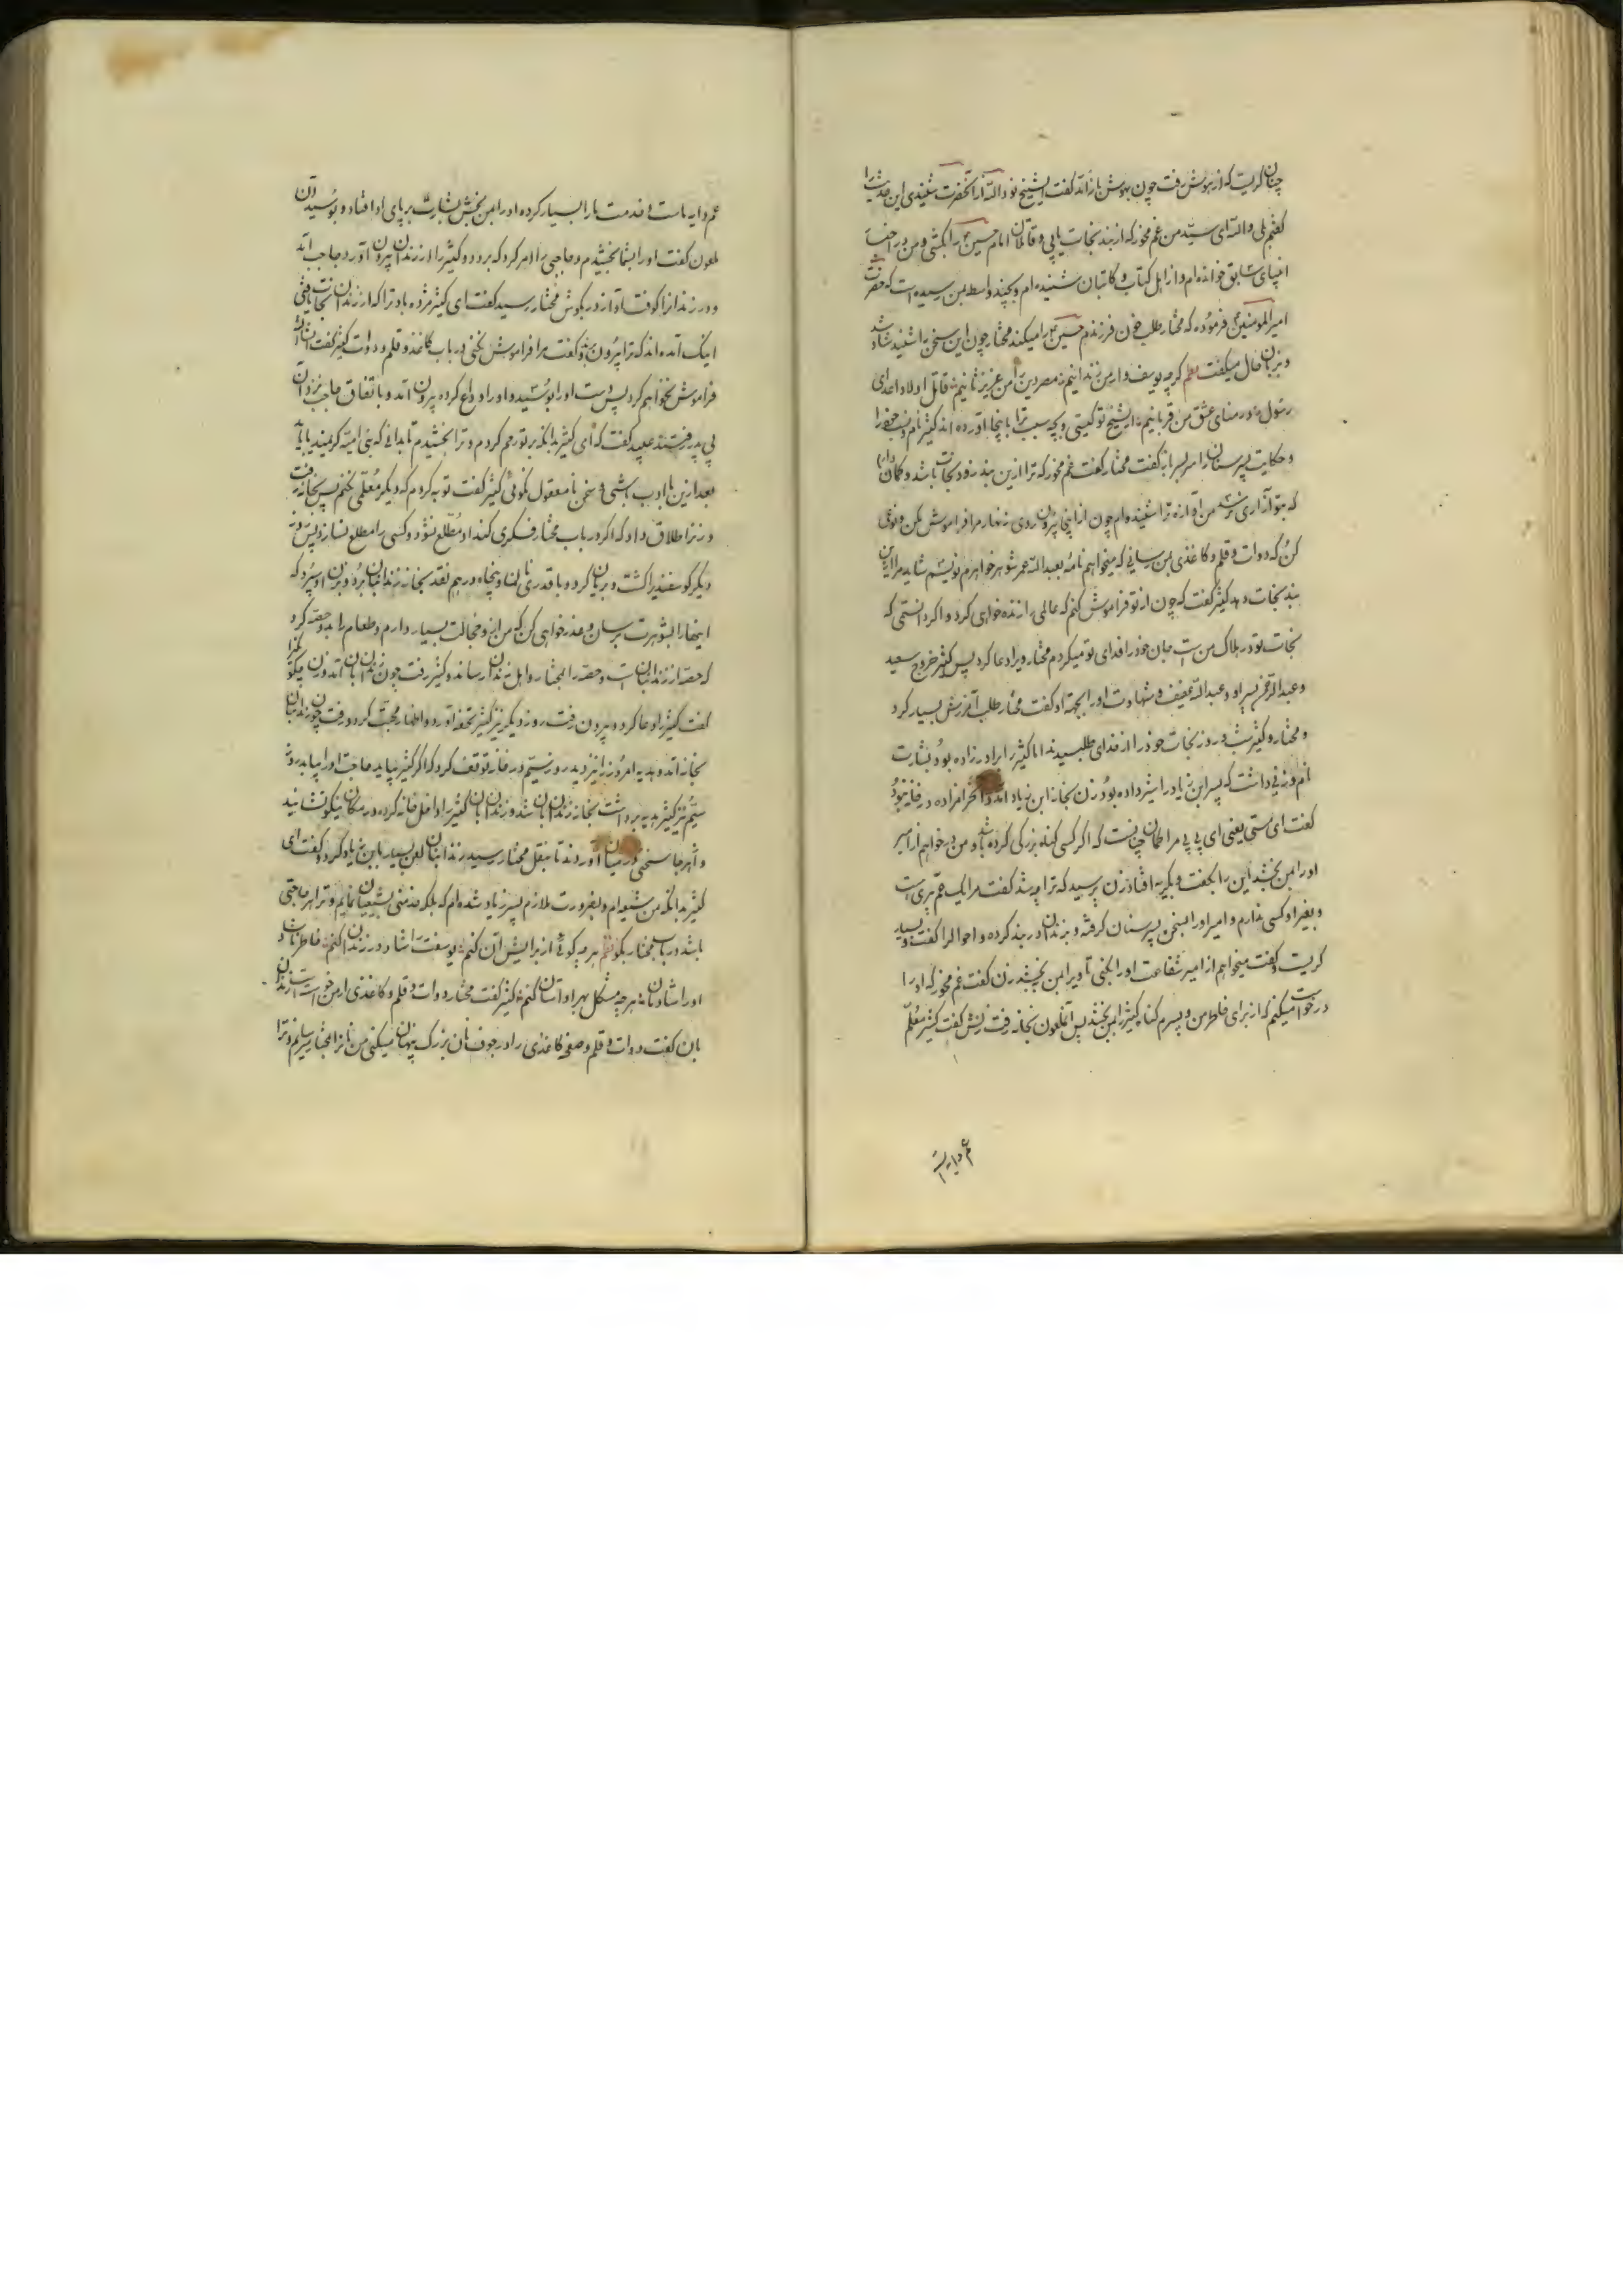 چنان گریست که از هوش رفت چون بهوش باز آمد گفت ایشیخ تو و الله از آنحضرت شنیدی این حدیث را
گفتم بلی والله ای سید من غم مخور که از بند نجات یابی و قاتلان امام حسین را بکشی و من در اخبار
انبیای سابق خوانده ام و از اهل کتاب و کاتبان شنیده ام و بچند واسطه بمن رسیده است که حضرت
امیرالمومنین فرموده که مختار طلب خون فرزندم حسین را میکند مختار چون این سخن را شنید شاد شد
و بزبان حال میگفت نظم گرچه یوسف وار من زندانیم در مصر دین من عزیز ثانیم قاتل اولاد اعدای
رسول در منای عشق من قربانیم ایشیخ تو کیستی و بچه سبب ترا باینجا آورده اند کثیر نام و نسب خود را
و حکایت پسر سنان را سربسر باز گفت مختار گفت غم مخور که ترا ازین بند زود نجات باشد و گمان دارم
که بتو آزاری نرسد من آوازه ترا شنیده ام چون از اینجا بیرون روی زنهار مرا فراموش مکن و سعی
کن که دوات و قلم و کاغذی بمن رسانی که میخواهم نامه بعبدالله عمر شوهر خواهرم نویسم شاید مرا ازین
بند نجات دهد کثیر گفت که چون از تو فراموش کنم که عالمی را زنده خواهی کرد و اگر دانستمی که
نجات تو در هلاک من است جان خود را فدای تو میکردم مختار ویرا دعا کرد پس کثیر خروج سعید
و عبدالرحمن پسر او و عبدالله عفیف و شهادت او را بجهة او گفت مختار طلب آمرزش بسیار کرد
و مختار و کثیر شب و روز نجات خود را از خدای طلبیدند اما کثیر را برادرزاده بود بشارت
نام و زنی داشت که پسر ابن زیاد را شیر داده بود زن بخانه ابن زیاد آمد و آنحرامزاده در خانه بود
گفت ای ستی یعنی ای بی بی مرا گمان چنانست که اگر کسی گناه بزرگی کرده باشد و من درخواهم از امیر
او را بمن بخشد این را بگفت و بگریه افتاد زن پرسید که ترا چه شد گفت مرا یک عم پیری است
و بغیر او کسی ندارم و امیر او را بسخن پسر سنان گرفته و بزندان در بند کرده و احوال را گفت و بسیار
گریست و گفت میخواهم از امیر شفاعت او را بکنی تا ویرا بمن بخشد زن گفت غم مخور که او را
درخواست میکنم که از برای خاطر من و پسرم گناه کثیر را بمن بخشد پس آنملعون بخانه رفت زنش گفت کثیر معلم
عم دایه است
عم دایه ماست و خدمت ما را بسیار کرده او را بمن بخش بشارت بر پای او افتاد و بوسید آن
ملعون گفت او را بشما بخشیدم و حاجبی را امر کرد که برود و کثیر را از زندان بیرون آورد حاجب آمد
و در زندانرا کوفت آواز در بگوش مختار رسید گفت ای کثیر مژده باد ترا که از زندان نجات یافتی
اینک آمده اند که ترا بیرون برند و گفت مرا فراموش نکنی در باب کاغذ و قلم و دوات کثیر گفت انشاالله
فراموش نخواهم کرد پس دست او را بوسید و او را وداع کرده بیرون آمد و باتفاق حاجب نزد آن
بی پدر فرستند عبید گفت که ای کثیر بدانکه بر تو رحم کردم و ترا بخشیدم تا بدانی که بنی امیه کریمند باید
بعد ازین با ادب باشی و سخن نامعقول نگوئی کثیر گفت توبه کردم که دیگر معلمی نکنم پس بخانه رفت
و زنرا طلاق داد که اگر در باب مختار فکری کند او مطلع نشود و کسی را مطلع نسازد پس روز
دیگر گوسفندی را کشت و بریان کرد و با قدری نان و پنجاه درهم نقد بخانه زندانبان برد و بزن او سپرد که
اینها را بشوهرت برسان و عذرخواهی کن که من از او خجالت بسیار دارم و طعام را بدو حصه کرد
که حصه از زندانبان است و حصه را بمختار و اهل زندان رساند و کثیر رفت چون زندانبان آمد زن بگو بگذرا
گفت کثیر را دعا کرد و بیرون رفت روز دیگر نیز کثیر تحفه آورد و اظهار محبت کرد و رفت چون زندانبان
بخانه آمد و هدیه امروز را نیز دید روز سیم در خانه توقف کرد که اگر کثیر بیاید حاجت او را بیابد روز
سیم نیز کثیر هدیه برداشت بخانه زندانبان شد و زندانبان کثیر را داخل خانه کرده در مکان نیکو نشانید
و از هر جا سخنی در میان آوردند تا بنقل مختار رسید زندانبان لعن بسیار بابن زیاد کرد و گفت ای
کثیر بدانکه من شیعه ام و بضرورت ملازم پسر زیاد شده ام که بلکه خدمتی بشیعیان نمایم و ترا هر حاجتی
باشد در باب مختار بگو نظم هرچه گوئی از برایش آن کنم یوسفت را شاد در زندان کنم خاطر ناشاد
او را شادمان هرچه مشکل بهر او آسان کنم کثیر گفت مختار دوات و قلم و کاغذی از من خواسته است زندان
بان گفت دوات و قلم و صفحه کاغذی را در جوف نان بزرگ پنهان میکنی من نانرا بمختار میرسانم و ترا